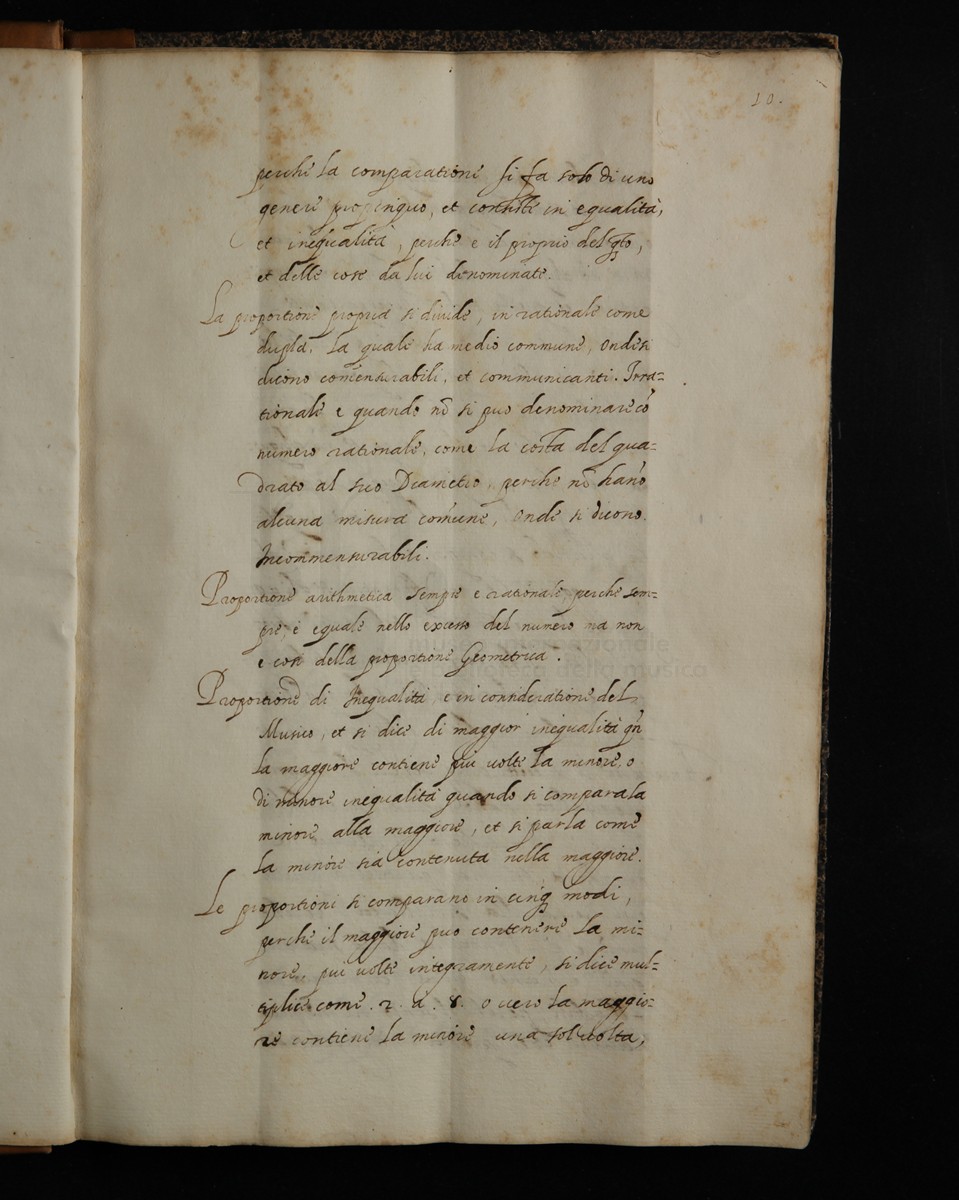 10.
perche la comparatione si fa solo di uno
genere propinquo, et consiste in equalità,
et inequalità, perche e il proprio del qto,
et delle cose da lui denominate.
La proportione propria si divide, in rationale come
dupla, la quale ha medio commune, onde si
dicono comensurabili, et communicanti. Irra=
tionale e quando nō si puo denominare cō
numero rationale, come la costa del qua=
drato al suo Diametro, perche nō hanō
alcuna misura comune, onde si dicono
Incommensurabili.
Proportione arithmetica sempre e rationale, perche sem=
pre, è equale nello excesso del numero ma non
e cosi della proportione Geometrica.
Proportione di Inequalità, e in consideratione del
Musico, et si dice di maggior inequalità qñ
la maggiore contiene piu volte la minore, o
di minore inequalità quando si compara la
minore alla maggiore, et si parla come
la minore sia contenuta nella maggiore.
Le proportioni si comparano in cinq modi,
perche il maggiore puo contenere la mi=
nore, piu volte integramente, si dice mul=
tiplice come .2. a .8. o vero la maggio=
re contiene la minore una sol volta,